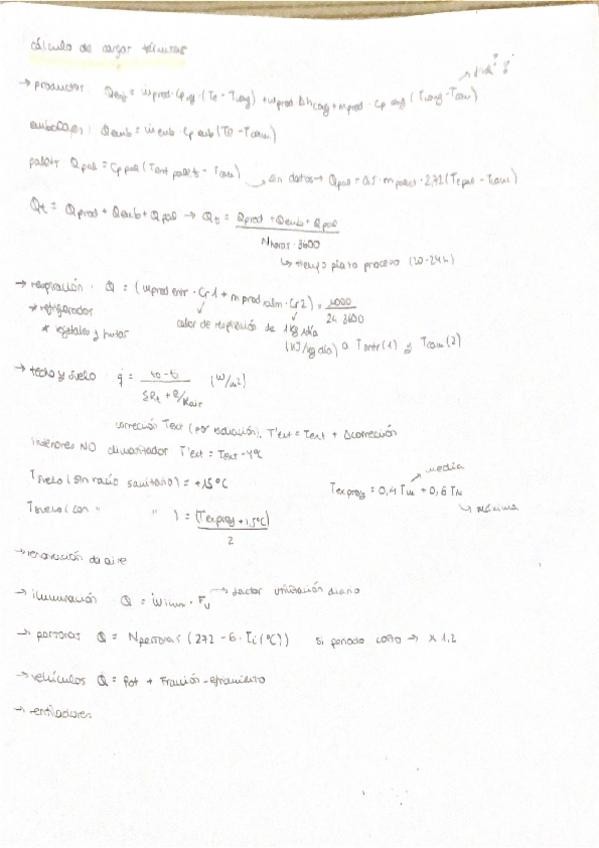 cálculo de cargas térmicas
→ productos Qenf = mprod · Cp,ref · (Te - Tcong) + mprod Δhcong + mprod · Cp cong (Tcong - Tcam)
embalajes: Qemb = memb · Cp emb (Te - Tcam)
palets Qpal = Cp pal (Tent palets - Tcam) sin datos → Qpal = 0,5 · mpalet · 2,72 (Tepal - Tcam)
Qt = Qprod + Qemb + Qpal → Qt = Qprod + Qemb + Qpal
Nhoras · 3600
↳ tiempo para proceso (20-24h)
→ respiración · Q = (mprod entr · Cr1 + mprod alm · Cr2) · 1000
* refrigerados 24 3600
* vegetales y frutas calor de respiración de 1kg/día
(KJ/kg día) a Tentr (1) y Tcam (2)
→ techo y suelo q = te - ti (W/m²)
ΣRt + e/Kair
corrección Text (por radiación). T'ext = Text + Δcorrección
interiores NO climatizador T'ext = Text - 4ºC
Tsuelo (sin vacío sanitario) = +15ºC Texproy = 0,4 Tm + 0,6 TM
media
máxima
Tsuelo (con " " ) = (Texproy + 15ºC)
2
→ renovación de aire
→ iluminación Q = Wilum · Fu → factor utilización diario
→ personas Q = Npersonas (272 - 6 · Ti (ºC)) si periodo corto → x 1,2
→ vehículos Q = Pot + Fracción
→ ventiladores